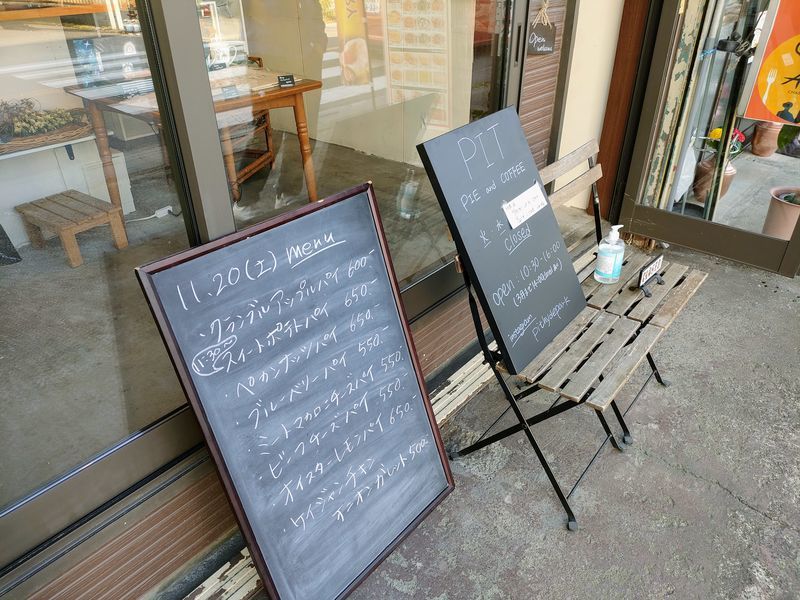 11.20(土) menu
・クランブルアップルパイ 600-
11:30〜 スイートポテトパイ 650-
・ペカンナッツパイ 650.
・ブルーベリーパイ 550.
・ミートマカロニチーズパイ 550.
・ビーフチーズパイ 550.
・オイスターレモンパイ 650.-
・ケイジャンチキン
オニオンガレット 500-
PIT
PIE and COFFEE
火・水
closed
open・10:30-16:00
instagram
pithydepark
Open
welcome